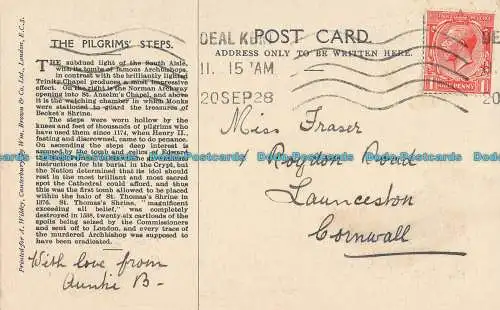 THE PILGRIMS' STEPS.
THE subdued light of the South Aisle,
with its tombs of famous Archbishops,
in contrast with the brilliantly lighted
Trinity Chapel produces a most impressive
effect. On the right is the Norman Archway
opening into St. Anselm's Chapel, and above
it is the watching chamber in which Monks
were stationed to guard the treasures of
Becket's Shrine.
The steps were worn hollow by the
knees and feet of thousands of pilgrims who
have used them since 1174, when Henry II.,
fasting and discrowned, came to do penance.
On ascending the steps deep interest is
aroused by the tomb and relics of Edward
instructions for his burial in the Crypt, but
the Nation determined that its idol should
rest in the most brilliant and most sacred
spot the Cathedral could afford, and thus
this was the first tomb allowed to be placed
within the halo of St. Thomas's Shrine in
1376. St. Thomas's Shrine, "magnificent
exceeding all belief," was completely
destroyed in 1538, twenty-six cartloads of the
spoils being seized by the Commissioners
and sent off to London, and every trace of
the murdered Archbishop was supposed to
have been eradicated.
With love from
Auntie B-
Printed for A. Wilkey, Canterbury, by Wm. Brown & Co. Ltd., London, E.C.3.
POST CARD.
ADDRESS ONLY TO BE WRITTEN HERE.
DEAL KENT
11. 15 AM
20 SEP 28
DE
20
ONE PENNY
Miss Fraser
Roydon Road
Launceston
Cornwall
Postcards Postcards Postcards Postcards Postcards Postcards